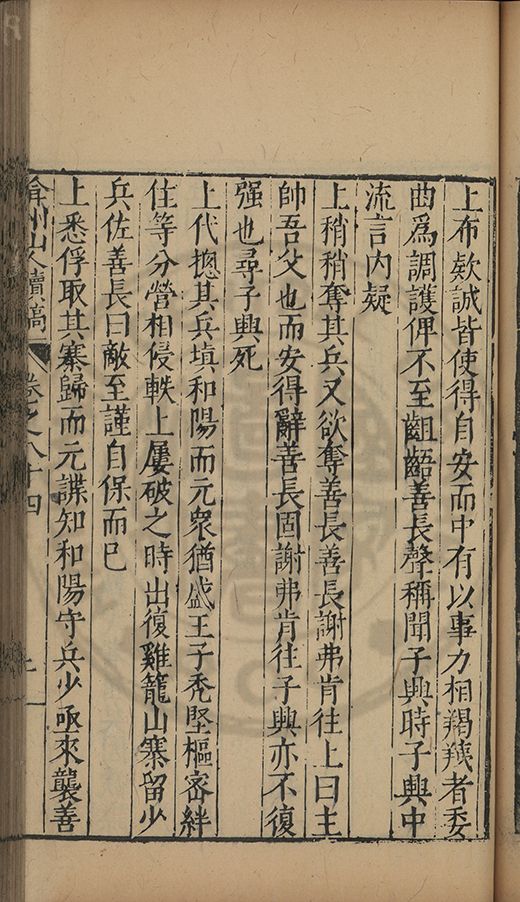 上布欵誠皆使得自安而中有以事力相羯羠者委
曲爲調護俾不至齟齬善長聲稱聞子興時子興中
流言内疑
上稍稍奪其兵又欲奪善長善長謝弗肯往上曰主
帥吾父也而安得辭善長固謝弗肯往子興亦不復
强也尋子興死
上代摠其兵填和陽而元衆猶盛王子秃堅樞密絆
住等分營相侵軼上屢破之時出復雞籠山寨留少
兵佐善長曰敵至謹自保而已
上悉俘取其寨歸而元諜知和陽守兵少亟來襲善
弇州山人續稿 卷之八十四